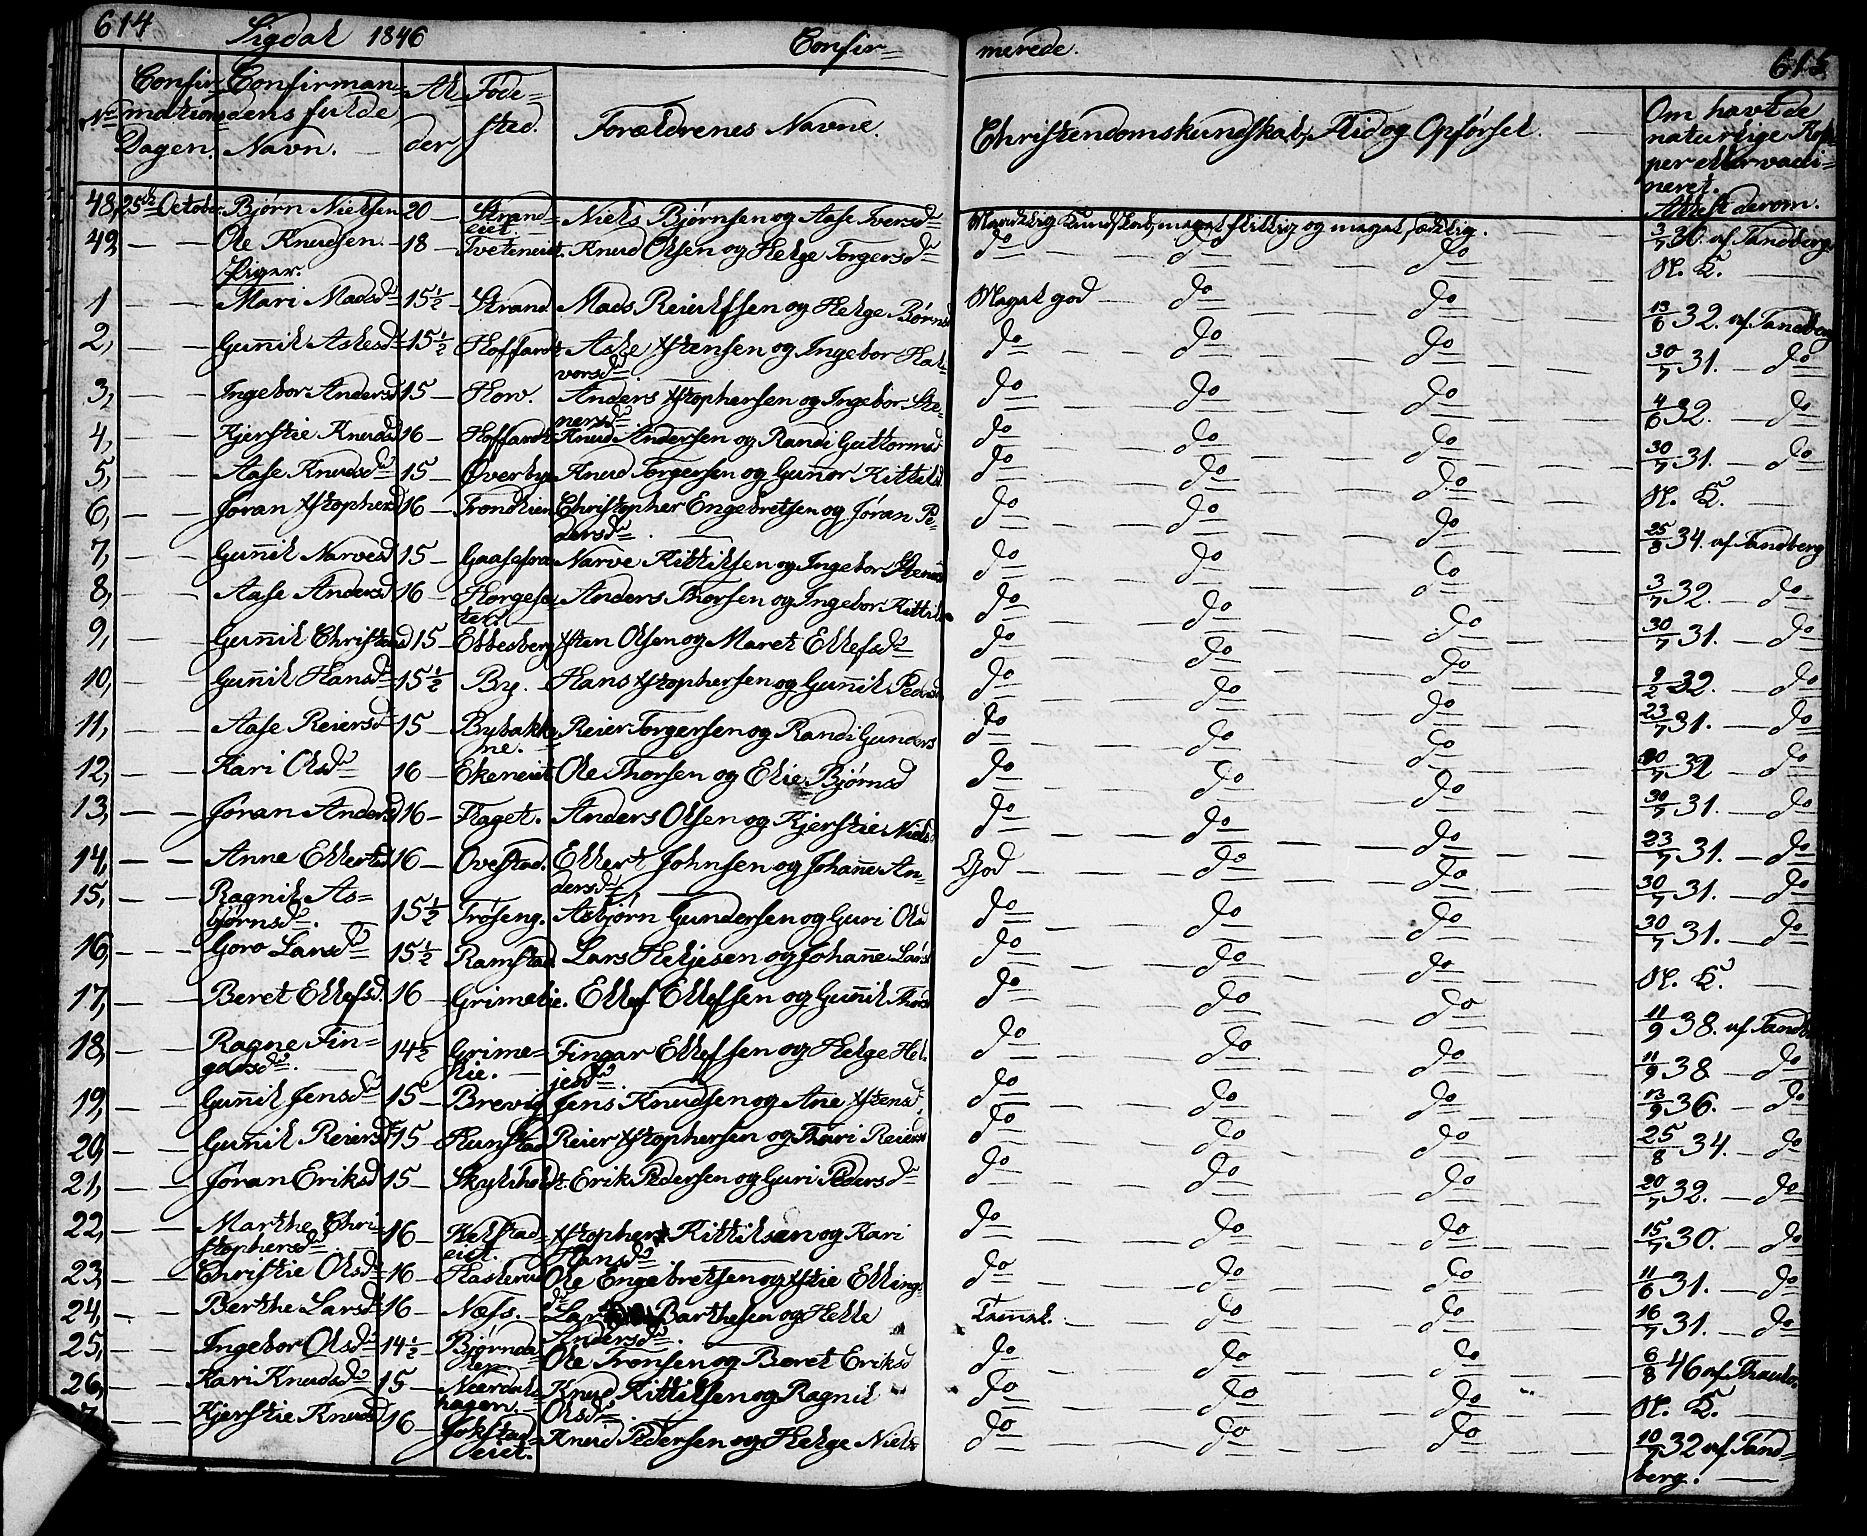 614 Sigdal 1846 Confir= merede. 615
No Confir= mations Dagen. Confirman= dens fulde Navn. Al= der Føde= sted. Forældrenes Navne. Christendomskundskab, Flid og Opførsel. Om havt de naturlige Kop= per eller vacci= neret. Attest derom.
48, 25de October Bjørn Nielsen 20 Strand= eiet. Niels Bjørnsen og Aase Iversd. Maadelig Kundskab, meget flittig og meget sædelig. 3/7 30. af Tandberg
49, — — Ole Knudsen. 18 Tveteneiet. Knud Olsen og Helge Torgersd. do do do N. K.
Piger.
1 — — Mari Madsd. 15 1/2 Strand Mads Reierssen og Helge Børns Meget god do do 13/6 32. af Tandberg
2, — — Guñil Aslesd. 15 1/2 Hoffardt Asle Xstensen og Ingebor Hal= vorsd. do do do 30/7 31. do
3, — — Ingebor Andersd 15 Hov. Anders Xstophersen og Ingebor Ste= nersd. do do do 4/6 32. do
4, — — Kjerstie Knudsd 16 Hoffardt Knud Andersen og Randi Guttormsd do do do 30/7 31. do
5, — — Aase Knudsd. 15 Overbye Knud Torgersen og Guñor Kittilsd. do do do N. K.
6, — — Jøran Xstophersd 16 Trondlien Christopher Engebretsen og Jøran Pe= dersd. do do do 25/8 34. af Tandberg
7, — — Guñil Narvesd 15 Narve Kittilsen og Ingebor Stens do do do 3/7 32. do
8, — — Aase Andersd 16 Anders Thorsen og Ingebor Kittils do do do 30/7 31. do
9, — — Guñil Christensd 15 Ebbesberg Xsten Olsen og Maret Ellefsd. do do do 9/2 32. do
10, — — Guñil Hansd. 15 1/2 By. Hans Xstophersen og Guñil Pedersd do do do 23/7 31. do
11, — — Aase Reiersd 15 Bybakke= ne. Reier Torgersen og Randi Gunders do do do 20/7 32 do
12, — — Kari Olsd. 16 Ekeneiet Ole Thorsen og Elie Bjørnsd do do do 30/7 31. do
13, — — Jøran Andersd 16 Flaget. Anders Olsen og Kjerstie Niels do do do 23/7 31. do
14, — — Anne Ellertsd 16 Ovestad. Ellert Johnsen og Johañe An= dersd. God do do 30/7 31. do
15, — — Ragnil As= bjørnsd. 15 1/2 Trøseng. Asbjørn Gundersen og Guri Olsd do do do 30/7 31. do
16, — — Goro Larsd. 15 1/2 Ramstad Lars Heljesen og Johañe Lars do do do N. K.
17, — — Beret Ellefsd. 16 Grimelie. Ellef Ellefsen og Guñil Thors do do do 11/9 38. af Tandb
18, — — Ragne Fin= gadsd. 14 1/2 Grime= lie. Fingar Ellefsen og Helge Hel= jesd. do do do 11/9 38 do
19, — — Guñil Jensd. 15 Brevig Jens Knudsen og Ane Xstensd. do do do 13/9 36. do
20, — — Gunil Reiersd. 15 Hunstad Reier Xstophersen og Kari Reiers do do do 25/8 34. do
21, — — Jøran Eriksd 15 Skylsholdt. Erik Pedersen og Guri Pedersd. do do do 20/7 32. do
22, — — Marthe Chri= stophersd. 16 Kelstad= eiet. Xstopher Kittilsen og Kari Hansd. do do do 15/7 30. do
23, — — Christie Olsd. 16 Haskerud Ole Engebretsen og Xstie Ellings= d. do do do 11/6 31. do
24, — — Berthe Larsd. 16 Næss. Lars Barthesen og Helle Andersd. Tæmel. do do 16/7 31. do
25, — — Ingebor Olsd. 14 1/2 Ole Tronsen og Beret Eriksd do do do 6/8 46 af Thaulo
26, — — Kari Knudsd. 15 hagen. Knud Kittilsen og Ragnil Olsd. do do do N. K.
7, — — Kjerstie Knudsd 16 Jokstad= eiet. Knud Pedersen og Helge Niels do do do 10/7 32 af Tand= berg.